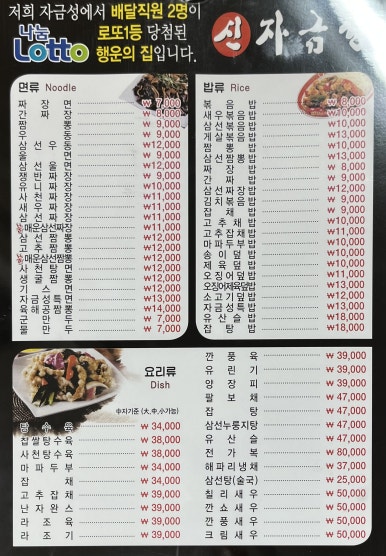 저희 자금성에서 배달직원 2명이
로또1등 당첨된
행운의 집입니다.
나눔
Lotto
신자금성
면류 Noodle
짜장면 ₩ 7,000
간짜장 ₩ 8,000
짬뽕 ₩ 9,000
우동 ₩ 9,000
삼선우동 ₩12,000
울면 ₩ 9,000
삼선울면 ₩12,000
쟁반짜장
유니짜장
사천짜장
새우짜장
매운삼선짜장
삼선짬뽕
고추짬뽕
매운삼선짬뽕
사천탕면
생굴짬뽕
기스면
자금성특짬뽕
육해공짬뽕
군만두 ₩ 7,000
물만두 ₩ 7,000
밥류 Rice
볶음밥 ₩ 8,000
새우볶음밥 ₩10,000
삼선볶음밥
게살볶음밥
짬뽕밥
삼선짬뽕밥
짜장밥
삼선짜장밥
김치볶음밥
잡채밥
고추채밥
고추잡채밥
마파두부밥
송이덮밥
제육덮밥
오징어덮밥
오징어제육덮밥
소고기덮밥
자금성특밥
유산슬밥 ₩18,000
잡탕밥 ₩18,000
요리류
Dish
中자기준 (大,中,小가능)
탕수육 ₩ 34,000
찹쌀탕수육 ₩ 38,000
사천탕수육 ₩ 38,000
마파두부 ₩ 34,000
잡채 ₩ 34,000
고추잡채 ₩ 39,000
난자완스 ₩ 39,000
라조육 ₩ 39,000
라조기 ₩ 39,000
깐풍육 ₩ 39,000
유린기 ₩ 39,000
양장피 ₩ 39,000
팔보채 ₩ 47,000
잡탕 ₩ 47,000
삼선누룽지탕 ₩ 47,000
유산슬 ₩ 47,000
전가복 ₩ 80,000
해파리냉채 ₩ 37,000
삼선탕(술국) ₩ 25,000
칠리새우 ₩ 50,000
깐쇼새우 ₩ 50,000
깐풍새우 ₩ 50,000
크림새우 ₩ 50,000